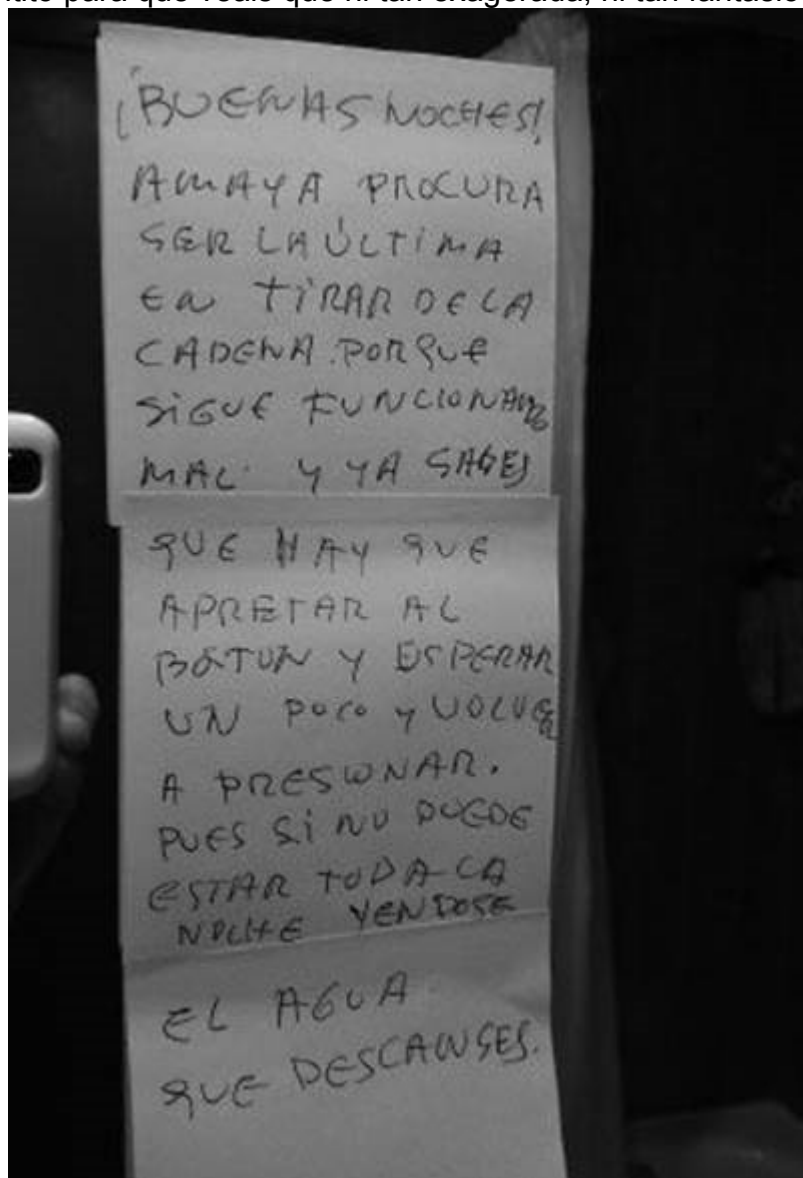 para que veáis que ni tan exagerada, ni tan
¡BUENAS NOCHES!
AMAYA PROCURA
SER LA ÚLTIMA
EN TIRAR DE LA
CADENA. PORQUE
SIGUE FUNCIONANDO
MAL Y YA SABES
QUE HAY QUE
APRETAR AL
BOTON Y ESPERAR
UN POCO Y VOLVER
A PRESIONAR.
PUES SI NO PUEDE
ESTAR TODA LA
NOCHE YENDOSE
EL AGUA.
QUE DESCANSES.